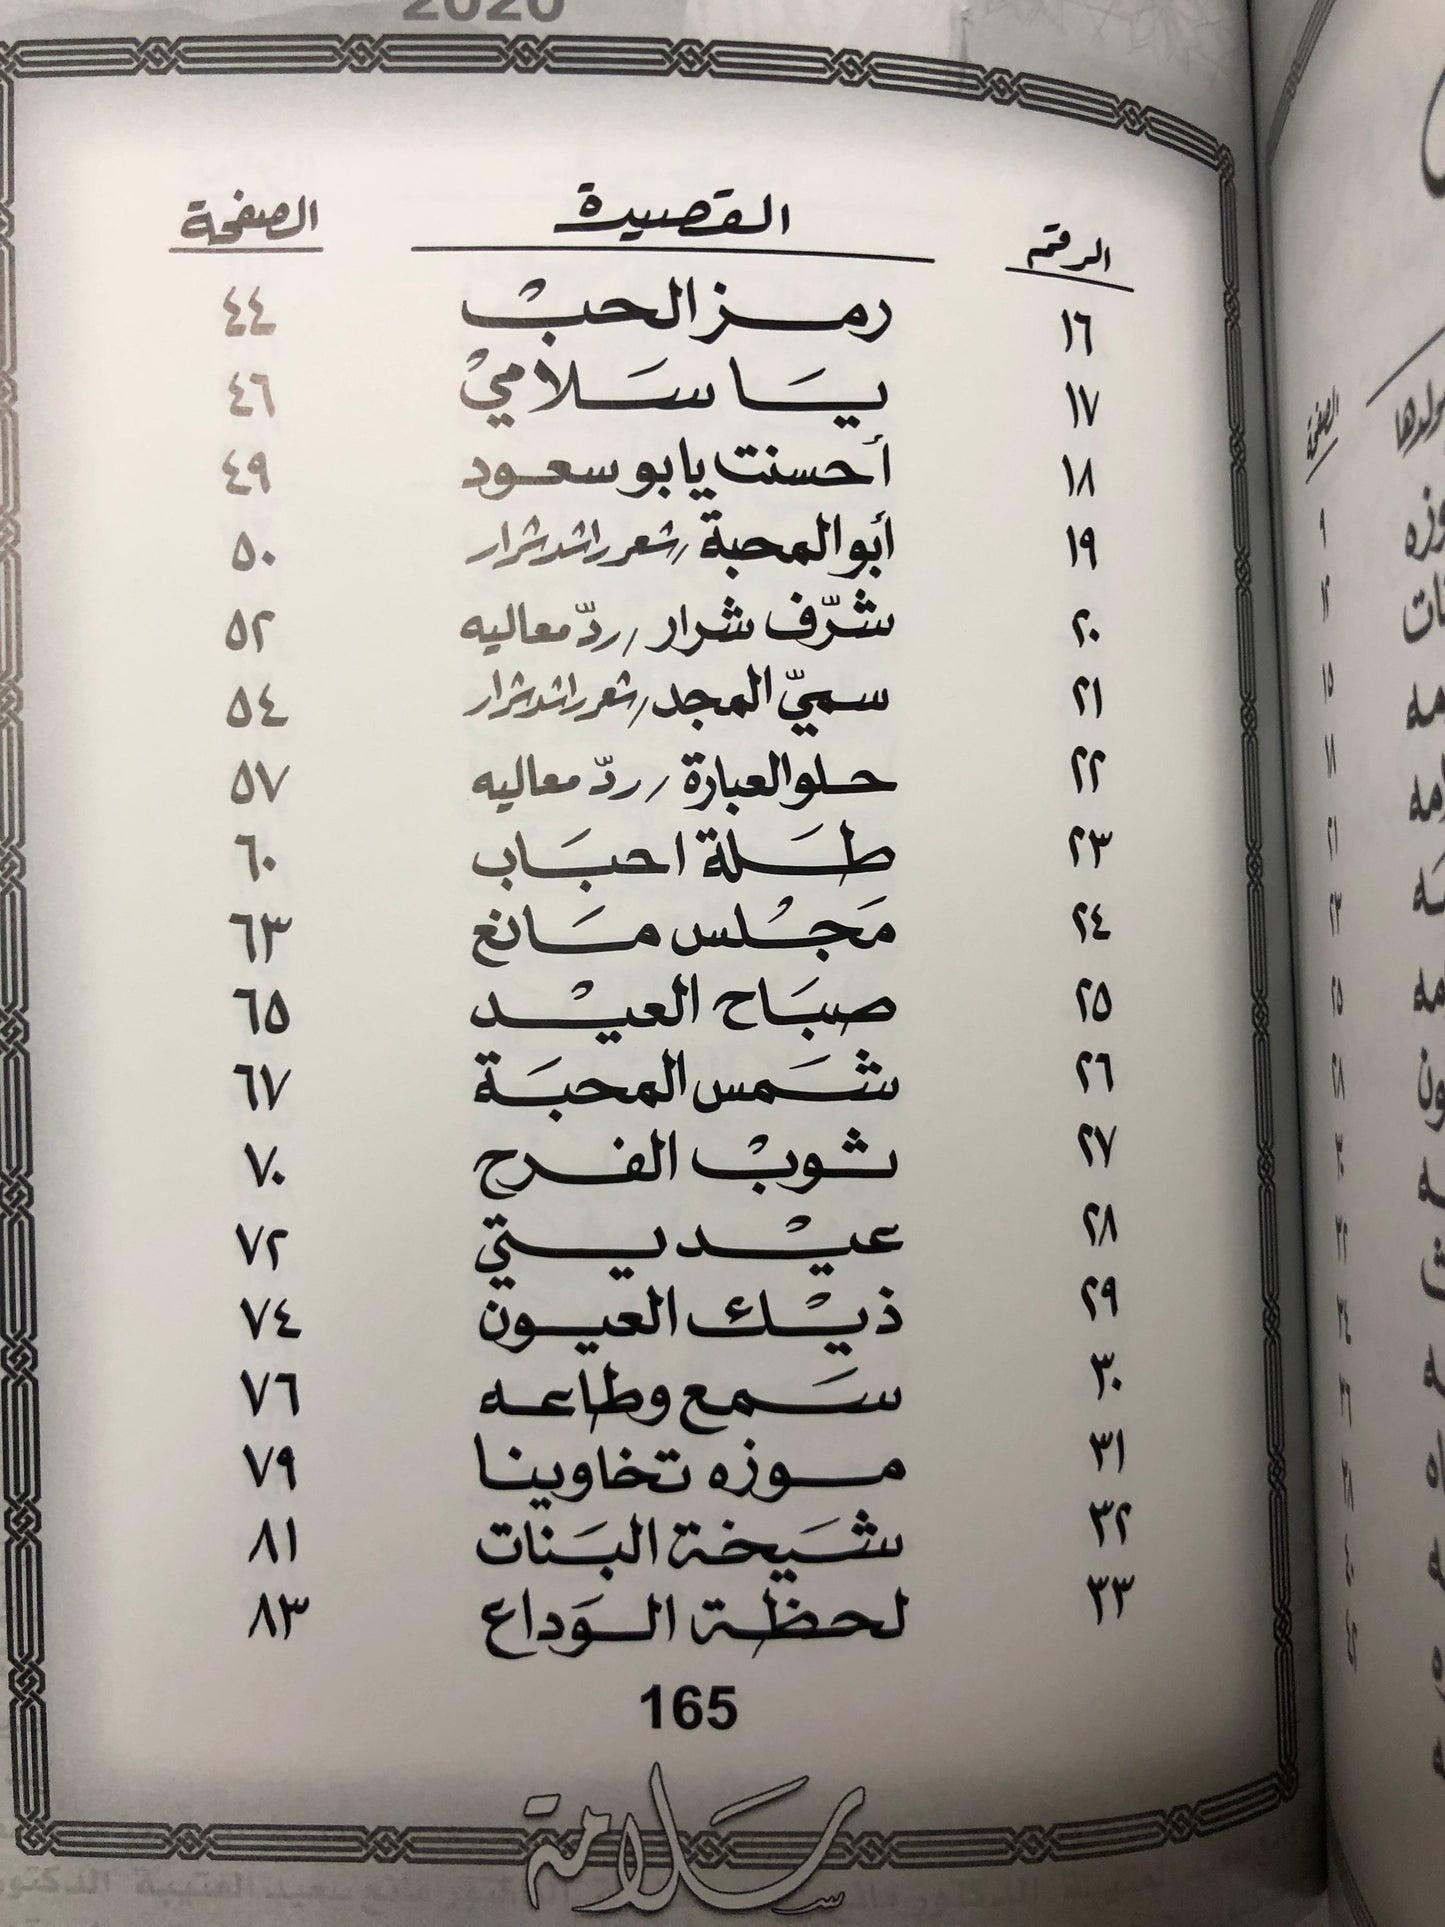 2020
الرقم القصيدة الصفحة
١٦ رمز الحبْ ٤٤
١٧ يَا سَلَامي ٤٦
١٨ أحسنت يا بو سعود ٤٩
١٩ أبو المحبة / شعر راشد شرار ٥٠
٢٠ شرّف شرار / ردّ معاليه ٥٢
٢١ سميّ المجد / شعر راشد شرار ٥٤
٢٢ حلو العبارة / ردّ معاليه ٥٧
٢٣ طَلة احبَاب ٦٠
٢٤ مَجْلس مَانع ٦٣
٢٥ صبَاح العيْد ٦٥
٢٦ شَمس المحبَة ٦٧
٢٧ ثوبْ الفرح ٧٠
٢٨ عيْديتي ٧٢
٢٩ ذيْك العيون ٧٤
٣٠ سَمع وطَاعه ٧٦
٣١ موزه تخاوينا ٧٩
٣٢ شَيخة البَنات ٨١
٣٣ لحظة الوَداع ٨٣
165
سلامة
الصفحة
٩
١٢
١٥
١٨
٢١
٢٣
٢٥
٢٨
٣٠
٣٢
٣٤
٣٦